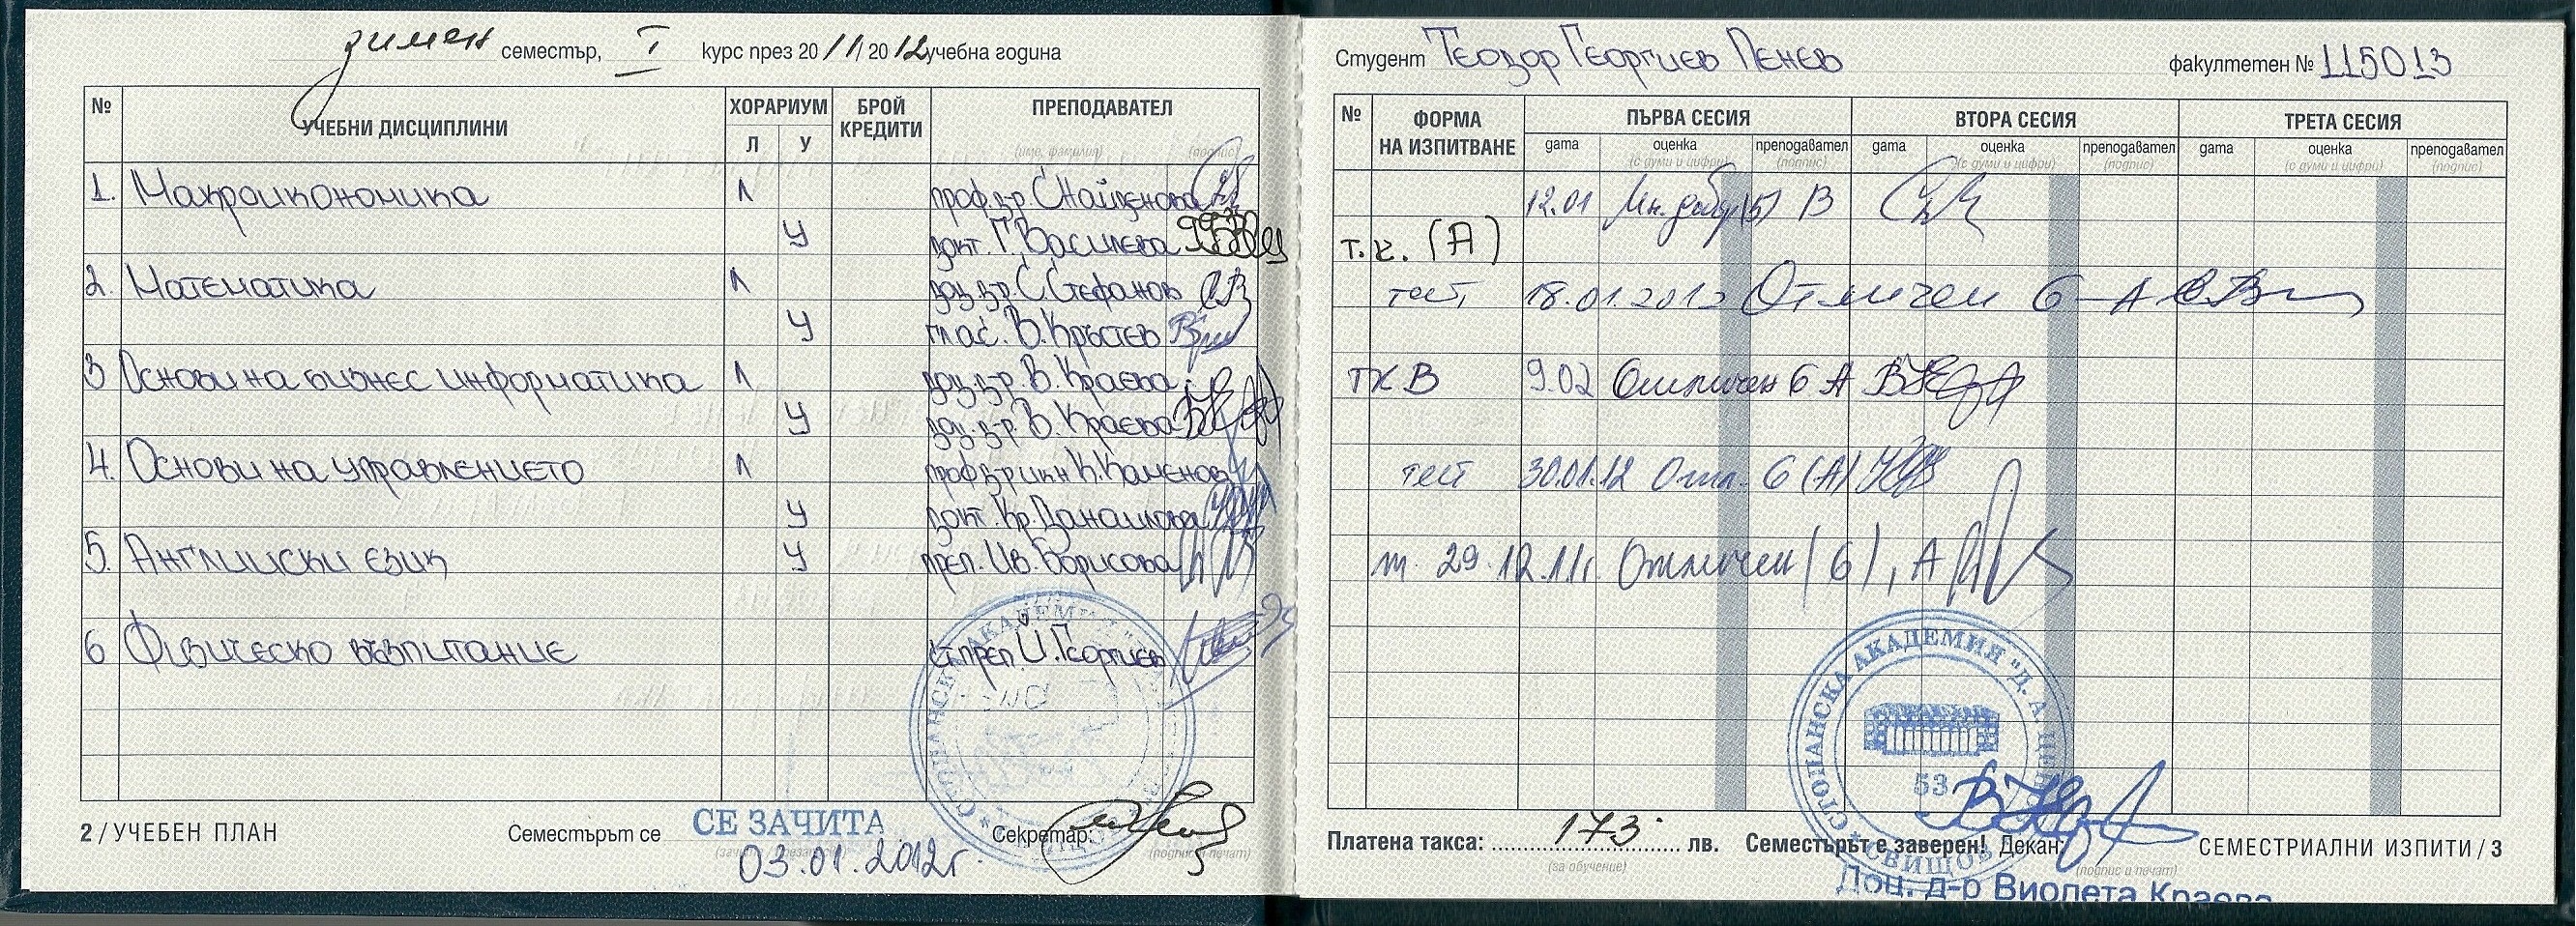 зимен семестър, I курс през 2011/2012 учебна година
№ УЧЕБНИ ДИСЦИПЛИНИ ХОРАРИУМ БРОЙ КРЕДИТИ ПРЕПОДАВАТЕЛ
Л У (име, фамилия) (подпис)
1. Макроикономика Л проф. д-р. С Найденова
У докт. Г. Василева
2. Математика Л доц. д-р. С. Стефанов
У гл. ас. В. Кръстев
3 Основи на бизнес информатика Л доц. д-р. В. Краева
У доц. д-р. В. Краева
4. Основи на управлението Л проф д-р икн К. Каменов
У докт. Кр. Данаилова
5. Английски език У преп. Ив. Борисова
6 Физическо възпитание ст. преп. Й. Георгиев
2 / УЧЕБЕН ПЛАН Семестърът се СЕ ЗАЧИТА Секретар:
03.01.2012г. (подпис и печат)
Студент Теодор Георгиев Пенев факултетен № 115013
№ ФОРМА НА ИЗПИТВАНЕ ПЪРВА СЕСИЯ ВТОРА СЕСИЯ ТРЕТА СЕСИЯ
дата оценка преподавател дата оценка преподавател дата оценка преподавател
(с думи и цифри) (подпис) (с думи и цифри) (подпис) (с думи и цифри) (подпис)
12.01 Мн. добър (5) В
т.к. (А)
тест 18.01.2012 Отличен 6 А
ТК В 9.02 Отличен 6 А
тест 30.01.12 Отл. 6 (А)
т. 29.12.11г Отличен (6), А
СТОПАНСКА АКАДЕМИЯ "Д. А. ЦЕН
53
СВИЩОВ
Платена такса: 173 лв. Семестърът е заверен! Декан:
(за обучение) (подпис и печат)
СЕМЕСТРИАЛНИ ИЗПИТИ / 3
Доц. д-р Виолета Краева